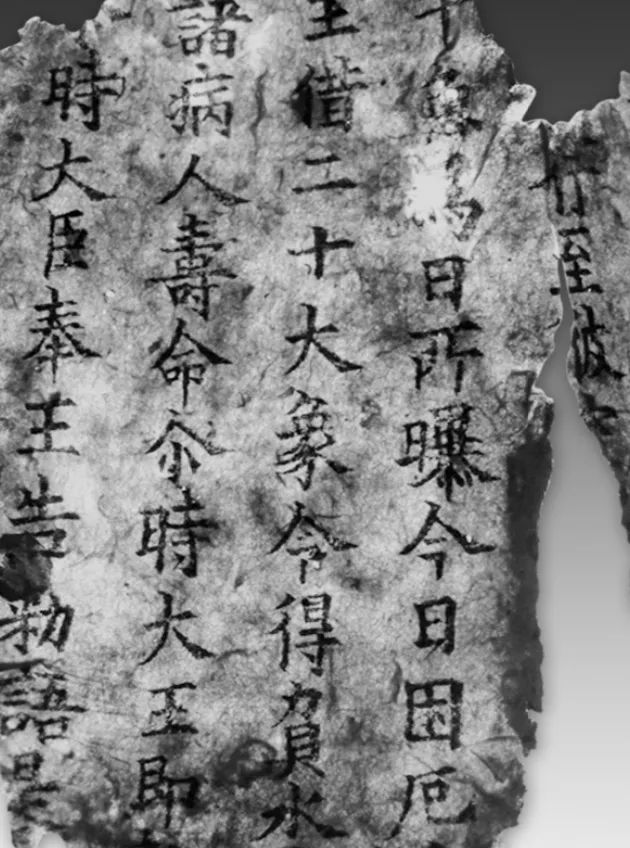 行至彼
千魚為日所曝今日困厄
王借二十大象令得負水
諸病人壽命尒時大王即
時大臣奉王告勑語是